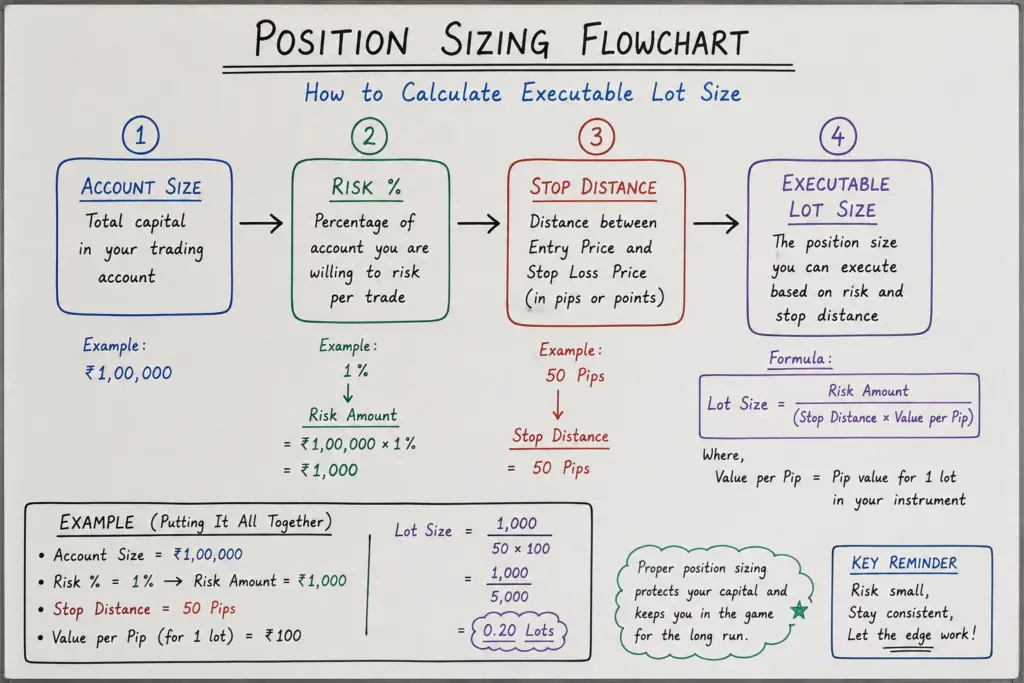 POSITION SIZING FLOWCHART
How to Calculate Executable Lot Size
1
ACCOUNT SIZE
Total capital
in your trading
account
Example:
₹1,00,000
2
RISK %
Percentage of
account you are
willing to risk
per trade
Example:
1%
Risk Amount
= ₹1,00,000 × 1%
= ₹1,000
3
STOP DISTANCE
Distance between
Entry Price and
Stop Loss Price
(in pips or points)
Example:
50 Pips
Stop Distance
= 50 Pips
4
EXECUTABLE
LOT SIZE
The position size
you can execute
based on risk and
stop distance
Formula:
Lot Size = Risk Amount
(Stop Distance × Value per Pip)
Where,
Value per Pip = Pip value for 1 lot
in your instrument
EXAMPLE (Putting It All Together)
• Account Size = ₹1,00,000
• Risk % = 1% → Risk Amount = ₹1,000
• Stop Distance = 50 Pips
• Value per Pip (for 1 lot) = ₹100
Lot Size = 1,000
50 × 100
= 1,000
5,000
= 0.20 Lots
Proper position sizing
protects your capital and
keeps you in the game
for the long run.
KEY REMINDER
Risk small,
Stay consistent,
Let the edge work!